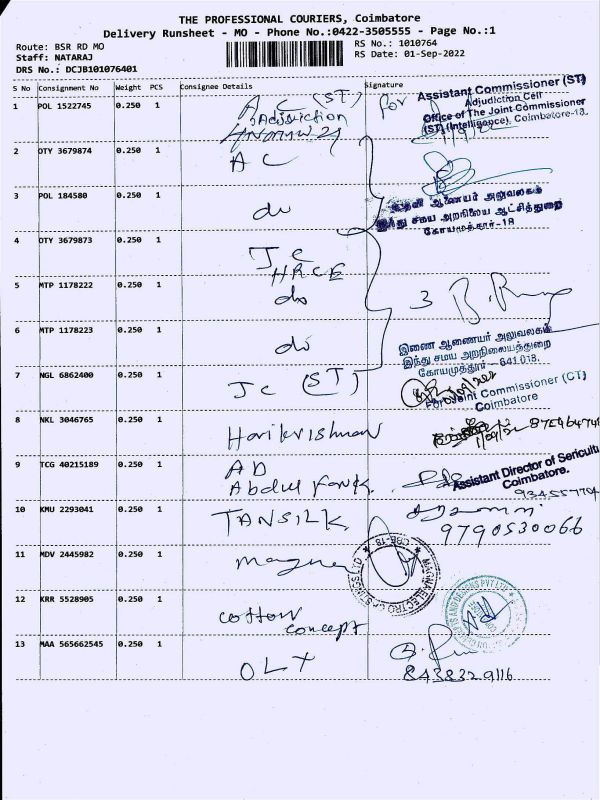 THE PROFESSIONAL COURIERS, Coimbatore
Delivery Runsheet - MO - Phone No.:0422-3505555 - Page No.:1
Route: BSR RD MO
Staff: NATARAJ
DRS No.: DCJB101076401
RS No.: 1010764
RS Date: 01-Sep-2022
S No Consignment No Weight PCS Consignee Details Signature
1 POL 1522745 0.250 1 A C (ST) for
Adjudiction
Assistant Commissioner (ST)
Adjudiction Cell
Office of The Joint Commissioner
(ST) (Intelligence), Coimbatore-18.
2 OTY 3679874 0.250 1 A C
3 POL 184580 0.250 1 do
உதவி ஆணையர் அலுவலகம்
இந்து சமய அறநிலைய ஆட்சித்துறை
கோயமுத்தூர்-18
4 OTY 3679873 0.250 1 J C
HRCE
5 MTP 1178222 0.250 1 do 3
6 MTP 1178223 0.250 1 do
இணை ஆணையர் அலுவலகம்
இந்து சமய அறநிலையத்துறை
கோயமுத்தூர் - 641 018.
7 NGL 6862400 0.250 1 Jc (ST)
For Joint Commissioner (CT)
Coimbatore
8 NKL 3046765 0.250 1 Harikrishnan
9 TCG 40215189 0.250 1 AD
Abdul
Assistant Director of Sericultu
Coimbatore.
10 KMU 2293041 0.250 1 TANSILK
9790530066
11 MDV 2445982 0.250 1 Magna
MAGNA ELECTRO CASTINGS LTD CBE-18
12 KRR 5528905 0.250 1 cotton
concept
13 MAA 565662545 0.250 1 OLX
8438329116